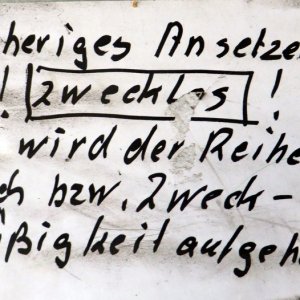 heriges Ansetze
! zwecklos !
wird der Reihe
ch bzw. Zweck-
äßigkeit aufgeh